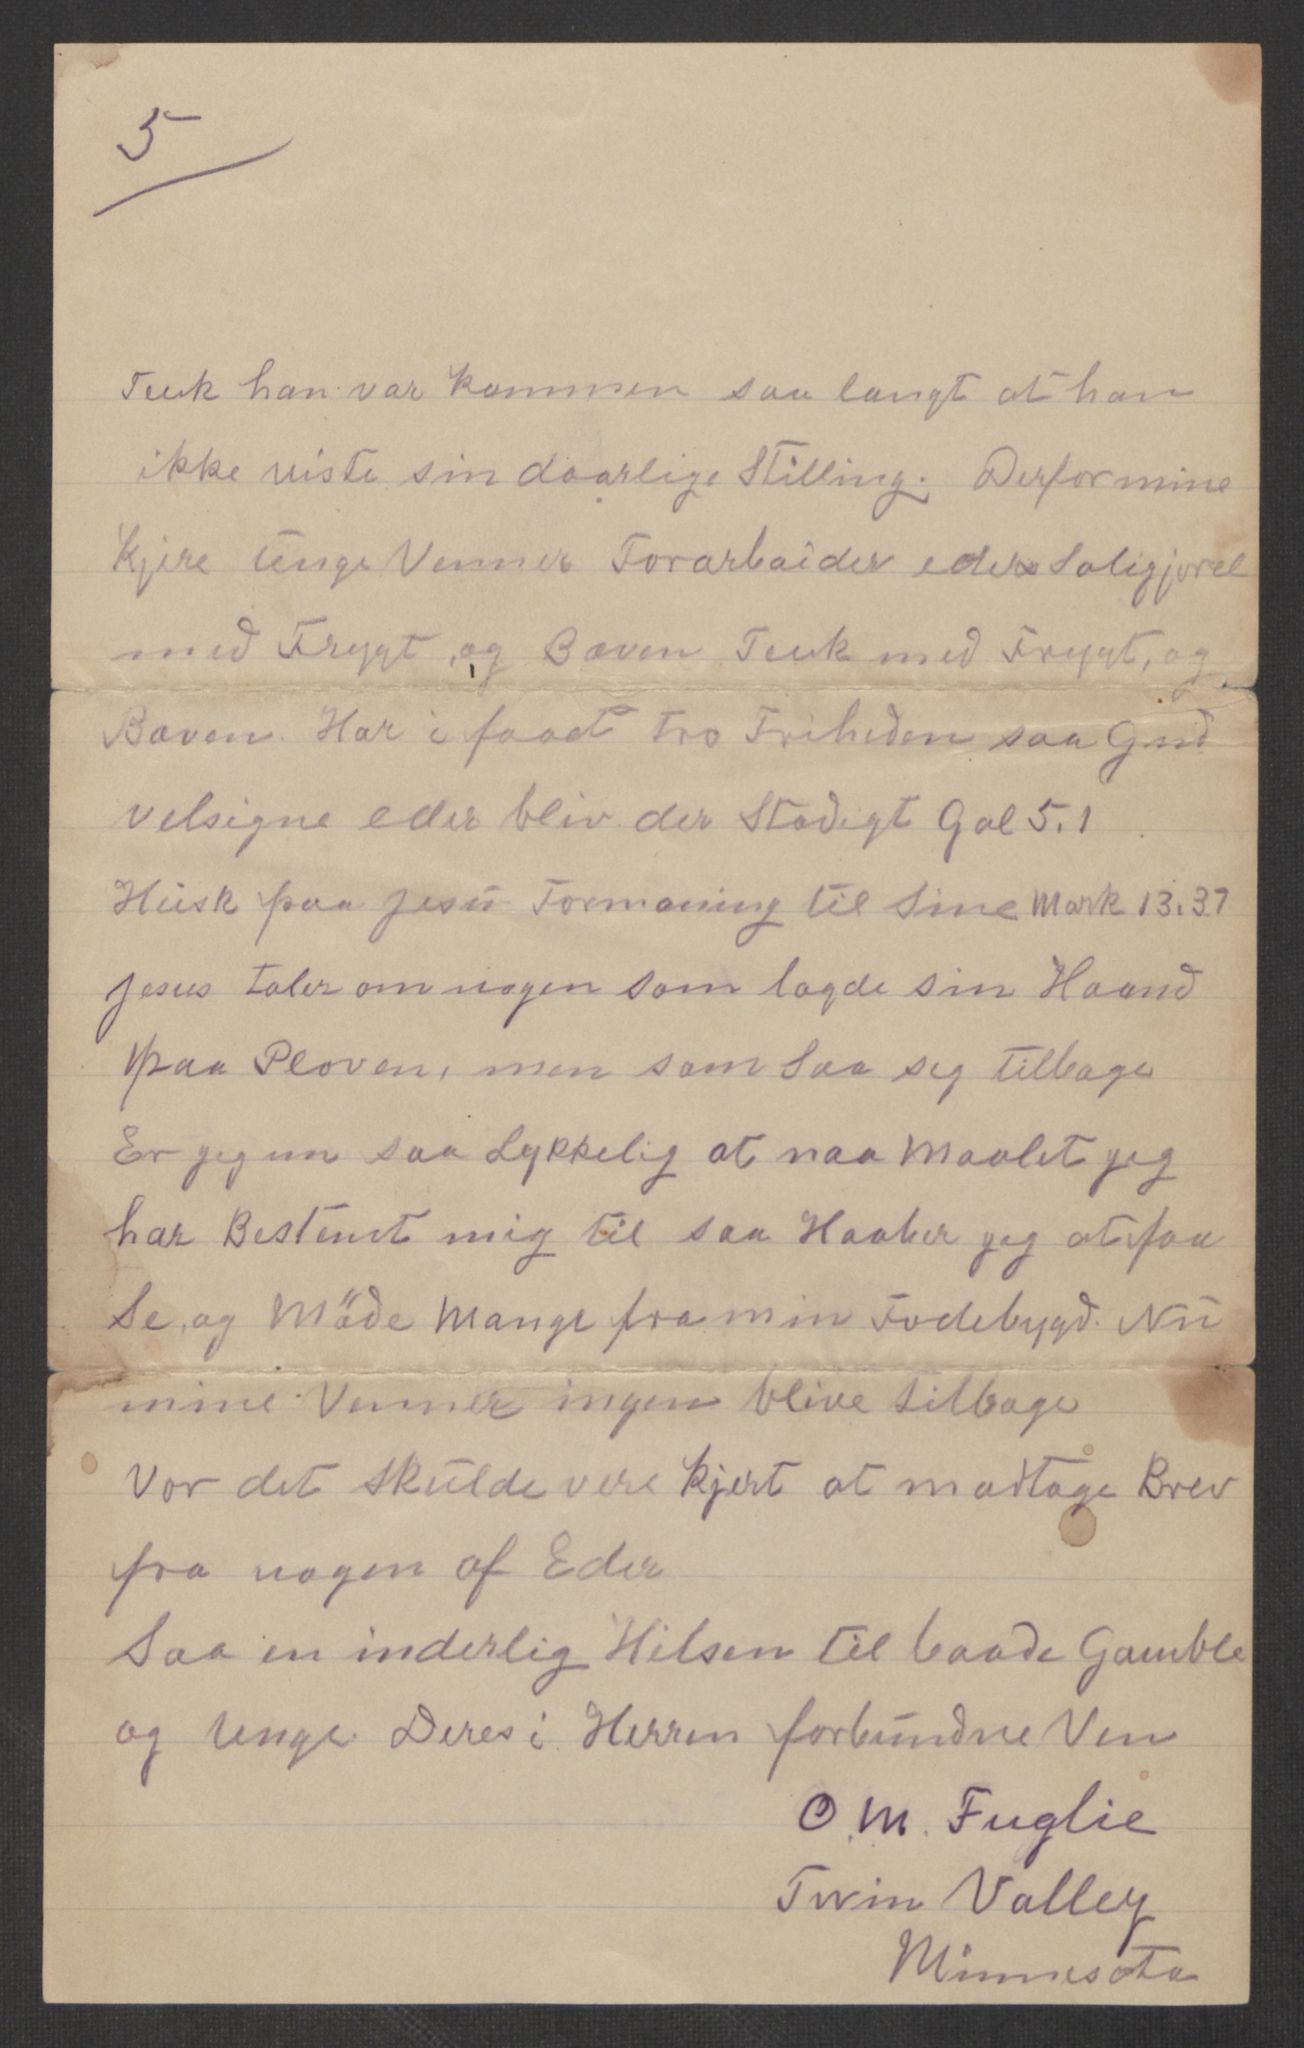 5
Tenk han var kommen saa langt at han
ikke viste sin daarlige Stilling. Derfor mine
kjere unge Venner Forarbaider eders Saligjorel
med Frygt, og Bæven Tenk med Frygt, og
Bæven. Har i faaet tro Friheden saa Gud
velsigne eder bliv der Stadigt Gal 5.1
Husk paa Jesu Formaning til Sine Mark 13.37
Jesus taler om nogen som lagde sin Haand
paa Ploven, men som Saa seg tilbage
Er jeg nu saa Lykkelig at naa Maalet jeg
har Bestemt mig til saa Haaber jeg at faa
Se, og Möde Mange fra min Fodebygd. Nu
mine Venner ingen blive tilbage
Vor det skulde vere kjert at modtage Brev
fra nogen af Eder
Saa en inderlig Hilsen til baade Gamble
og Unge Deres i Herren forbundne Ven
O. M. Fuglie
Twin Valley
Minnesota